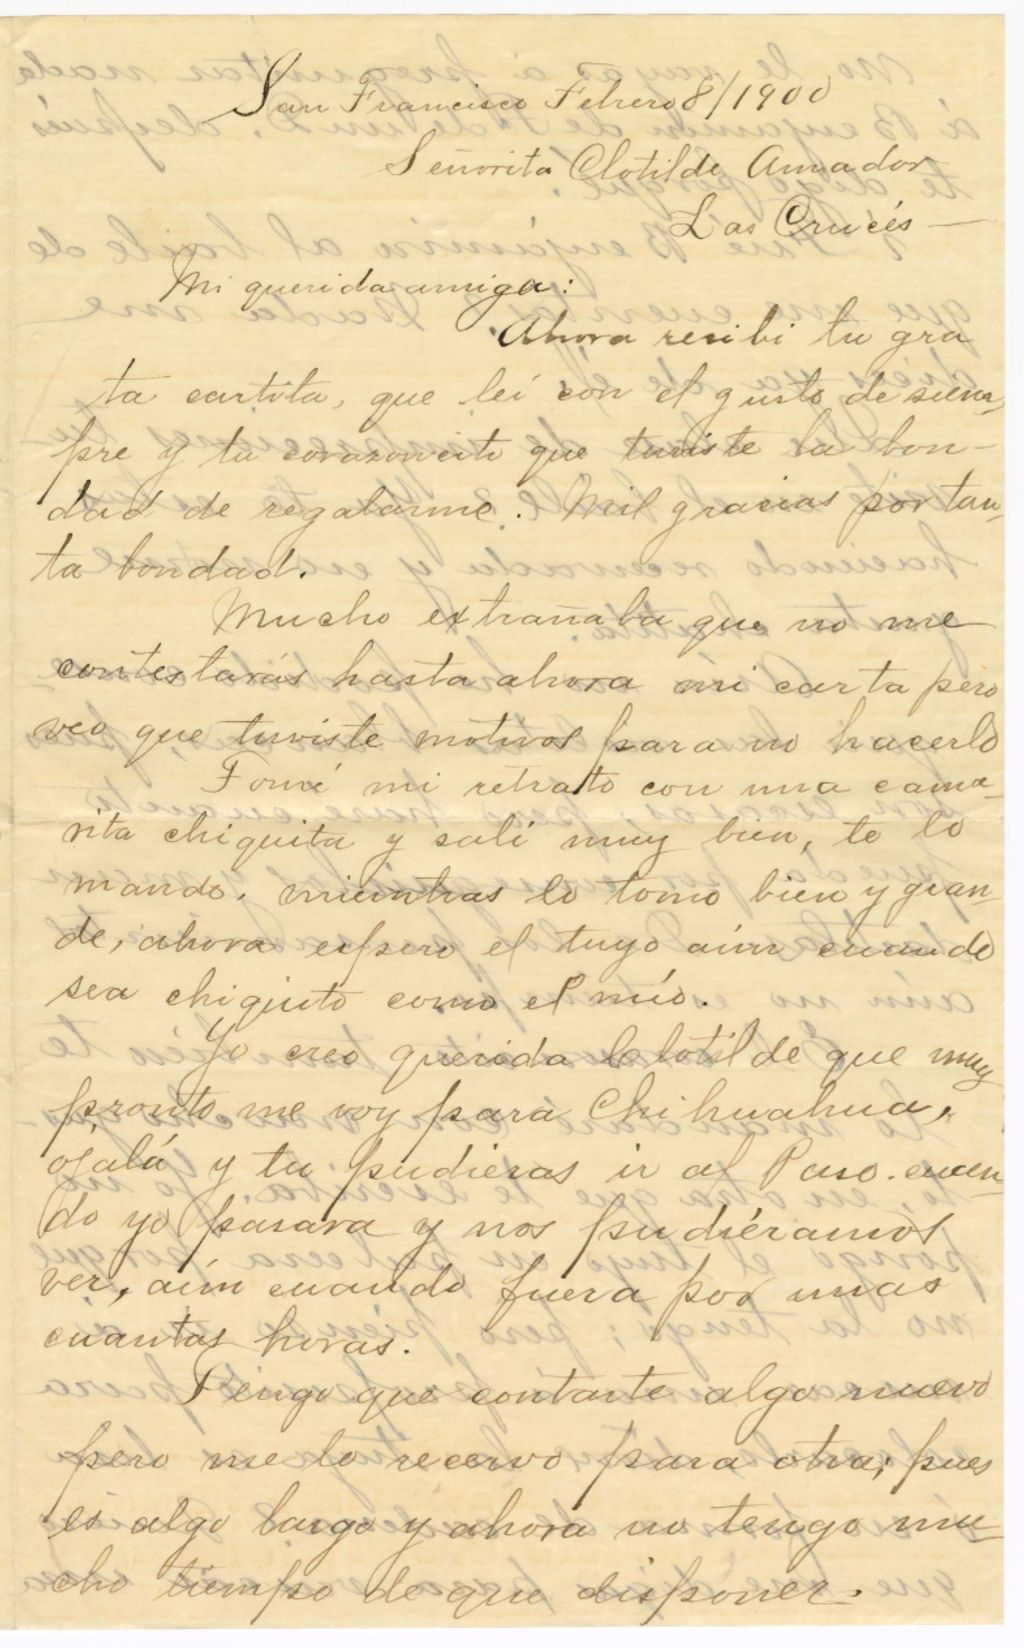 San Francisco Febrero 8/1900
Señorita Clotilde Amador
Las Crucés —
Mi querida amiga:
Ahora recibi tu gra
ta cartita, que leí con el gusto de siem,
pre y tu corazoncito que tuviste la bon-
dad de regalarme. Mil gracias por tan,
ta bondad.
Mucho extrañaba que no me
contestarás hasta ahora mi carta pero
veo que tuviste motivos para no hacerlo
Tomé mi retrato con una cama-
rita chiquita y salí muy bien, te lo
mando, mientras lo tomo bien y gran
de, ahora espero el tuyo aún cuando
sea chiquito como el mío.
Yo creo querida Clotilde que muy
pronto me voy para Chihuahua,
ojalá y tu pudieras ir al Paso cuan-
do yo pasara y nos pudiéramos
ver, aún cuando fuera por unas
cuantas horas.
Tengo que contarte algo nuevo
pero me lo recervo para otra; pues
es algo largo y ahora no tengo mu-
cho tiempo de que disponer.